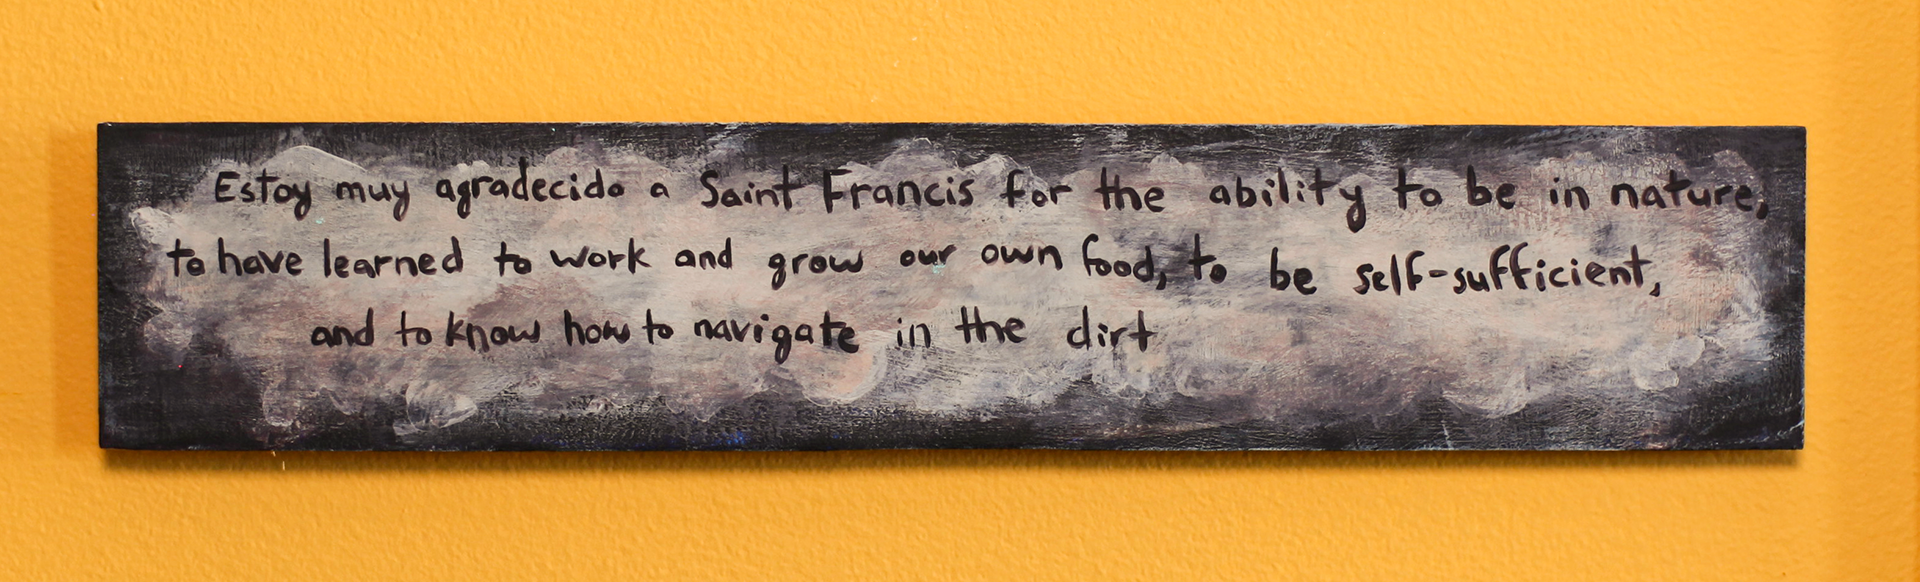 Estoy muy agradecido a Saint Francis for the ability to be in nature,
to have learned to work and grow our own food, to be self-sufficient,
and to know how to navigate in the dirt